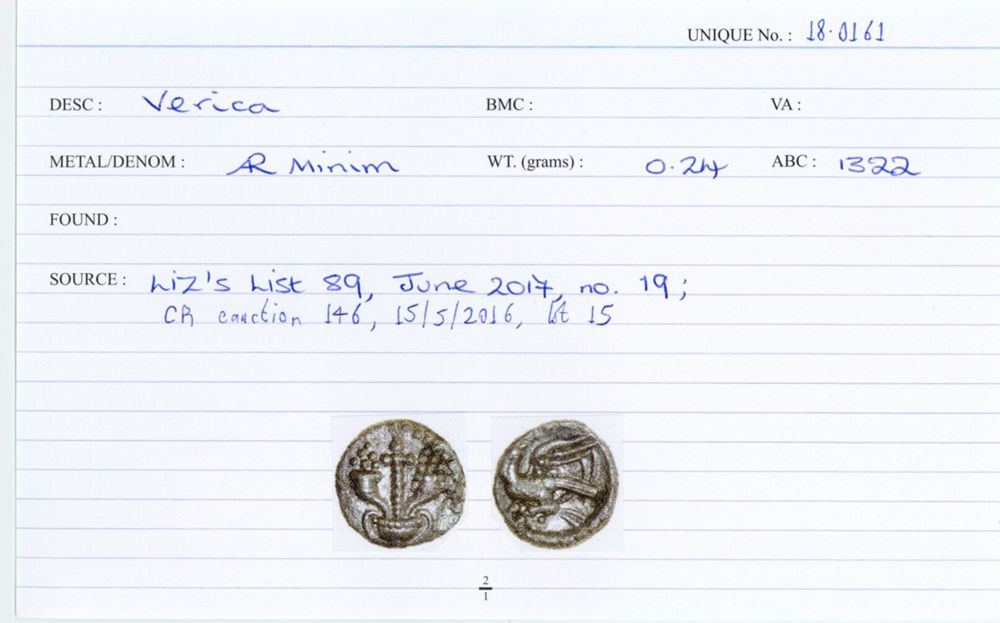 UNIQUE No. : 18.0161
DESC : Verica BMC : VA :
METAL/DENOM : AR Minim WT. (grams) : 0.24 ABC : 1322
FOUND :
SOURCE : Liz's List 89, June 2017, no. 19;
CR eauction 146, 15/5/2016, lot 15
2
1